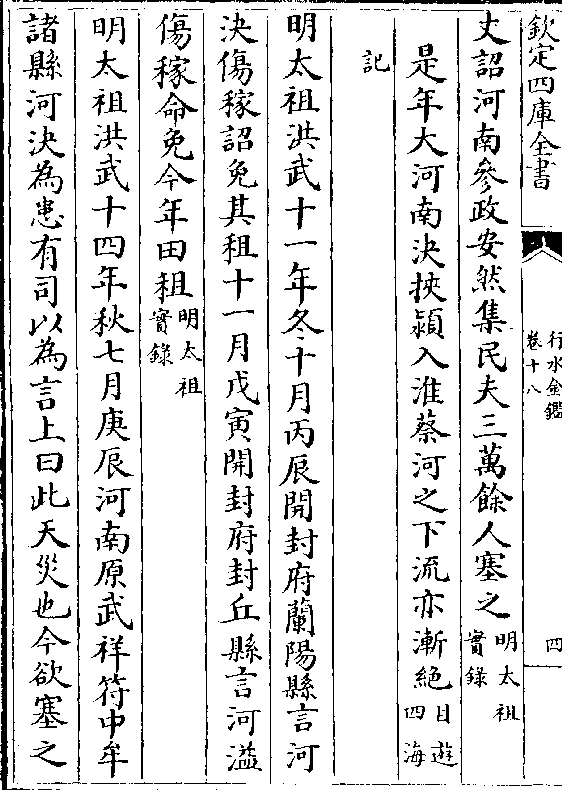 欽定四庫全書
行水金鑑
卷十八
四
丈詔河南參政安然集民夫三萬餘人塞之明太祖實錄
是年大河南決挾潁入淮蔡河之下流亦漸絕日遊四海
記
明太祖洪武十一年冬十月丙辰開封府蘭陽縣言河
決傷稼詔免其租十一月戊寅開封府封丘縣言河溢
傷稼命免今年田租明太祖實錄
明太祖洪武十四年秋七月庚辰河南原武祥符中牟
諸縣河決為患有司以為言上曰此天災也今欲塞之